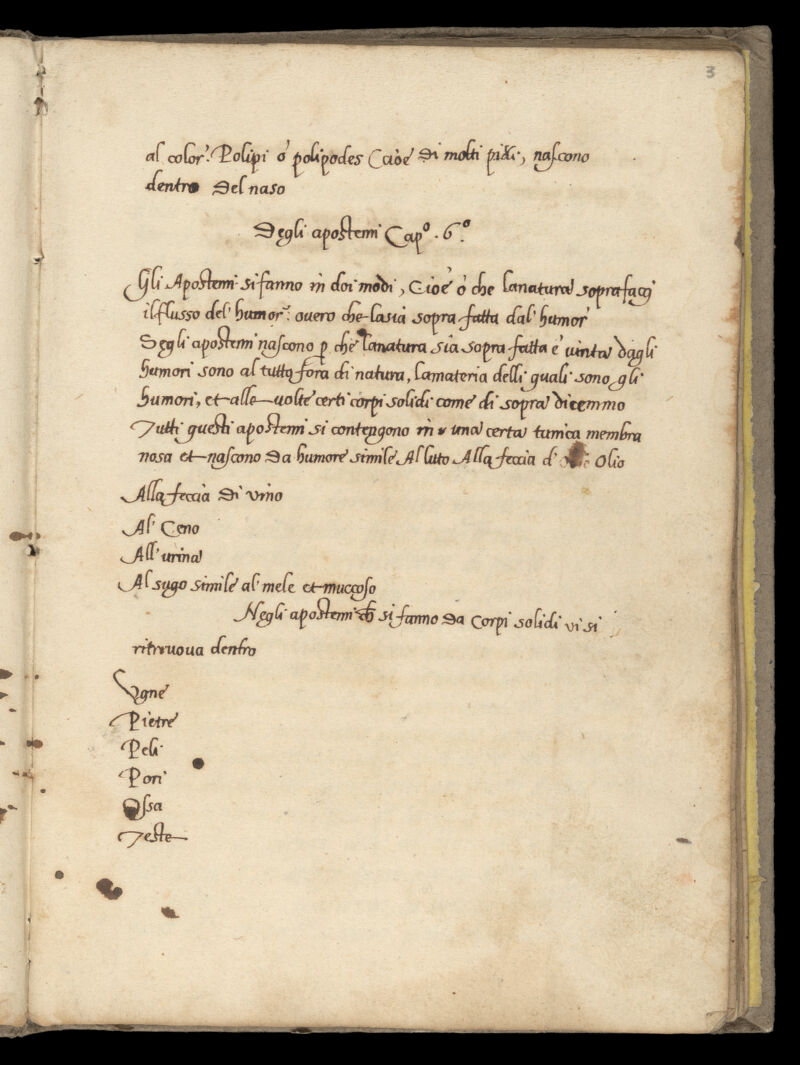 3
al color. Polipi ò polipodes Cioè di molti piedi, nascono
dentro del naso
Degli apostemi Cap.º 6.º
Gli Apostemi si fanno in doi modi, Cioè ò che lanatura soprafaçi
il flusso del humor: overo che lasia sopra fatta dal humor
Degli apostemi nascono p che lanatura sia sopra fatta e vinta dagli
humori sono al tutto fora di natura, lamateria delli quali sono gli
humori, et alle volte certi corpi solidi come di sopra dicemmo
Tutti questi apostemi si contengono in una certa tunica membra
nosa et nascono da humore simile Al luto Alla feccia d' Olio
Alla feccia di vino
Al Ceno
All'urina
Al sugo simile al mele et muccoso
Negli apostemi ch si fanno da Corpi solidi vi si
ritruova dentro
Ugne
Pietre
Peli
Pori
Ossa
Teste